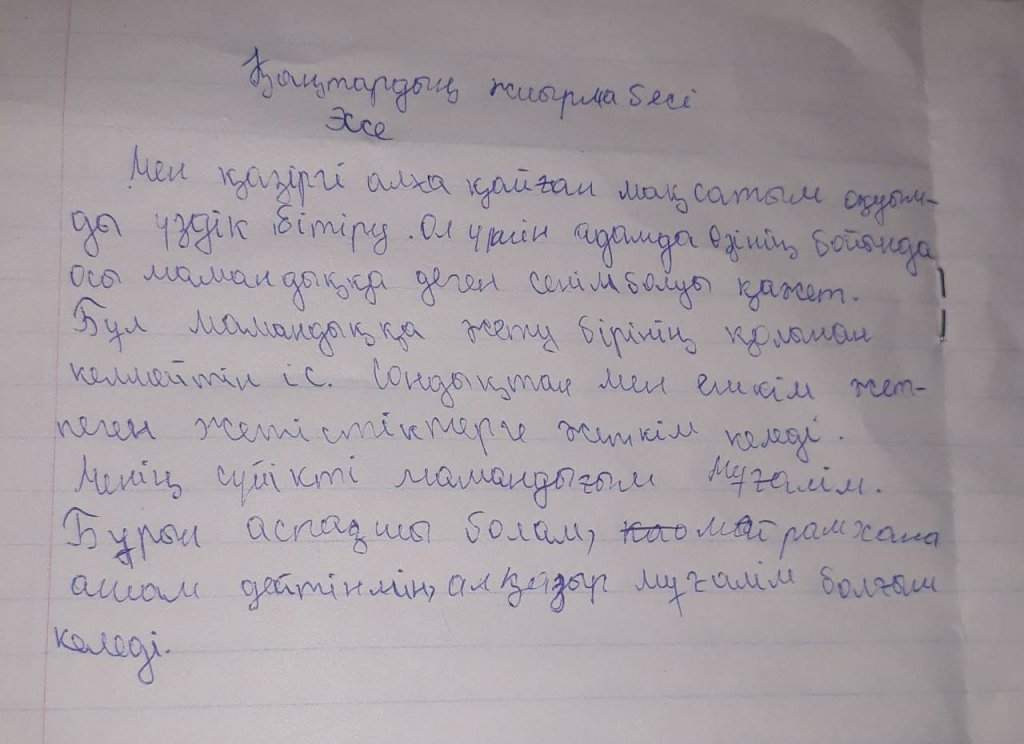 Қаңтардың жиырма бесі
Эссе
Мен қазіргі алха қойған мақсатым оқуым-
ды үздік бітіру. Ол үшін адамда өзінің бойында
осы мамандыққа деген сенім болуы қажет.
Бұл мамандыққа жету бірінің қолынан
келмейтін іс. Сондықтан мен ешкім жет-
пеген жетістіктерге жеткім келеді.
Менің сүйікті мамандығым Мұғалім.
Бұрын аспазшы болам, мейрамхана
ашам дейтінмін, ал қазыр мұғалім болғым
келеді.